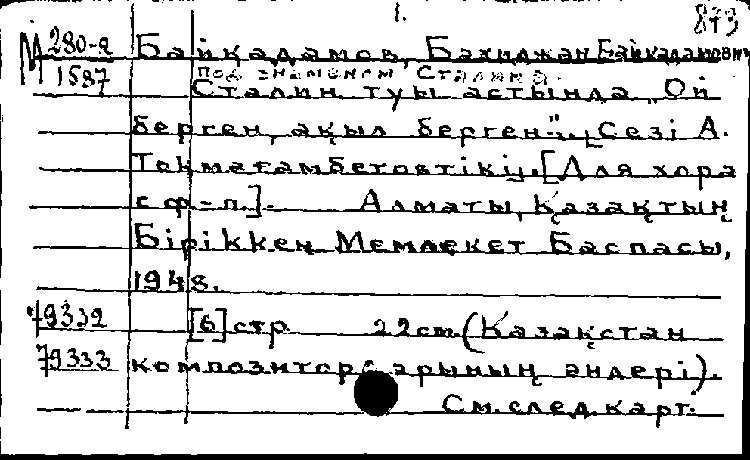 1.
873
М 280-я Байқадамов, Бахиджан Байкадамович
1587 под знаменем Сталина.
Сталин туы астында „Ой
берген, ақыл берген“. Сезі А.
Тоқмағамбетовтікі. [Для хора
с ф-п.]. Алматы, Қазақтың
Біріккен Мемлекет Баспасы,
1948.
79332 [6] стр. 22 см. (Казақстан
79333 композиторларының әндері).
См. след. карт.